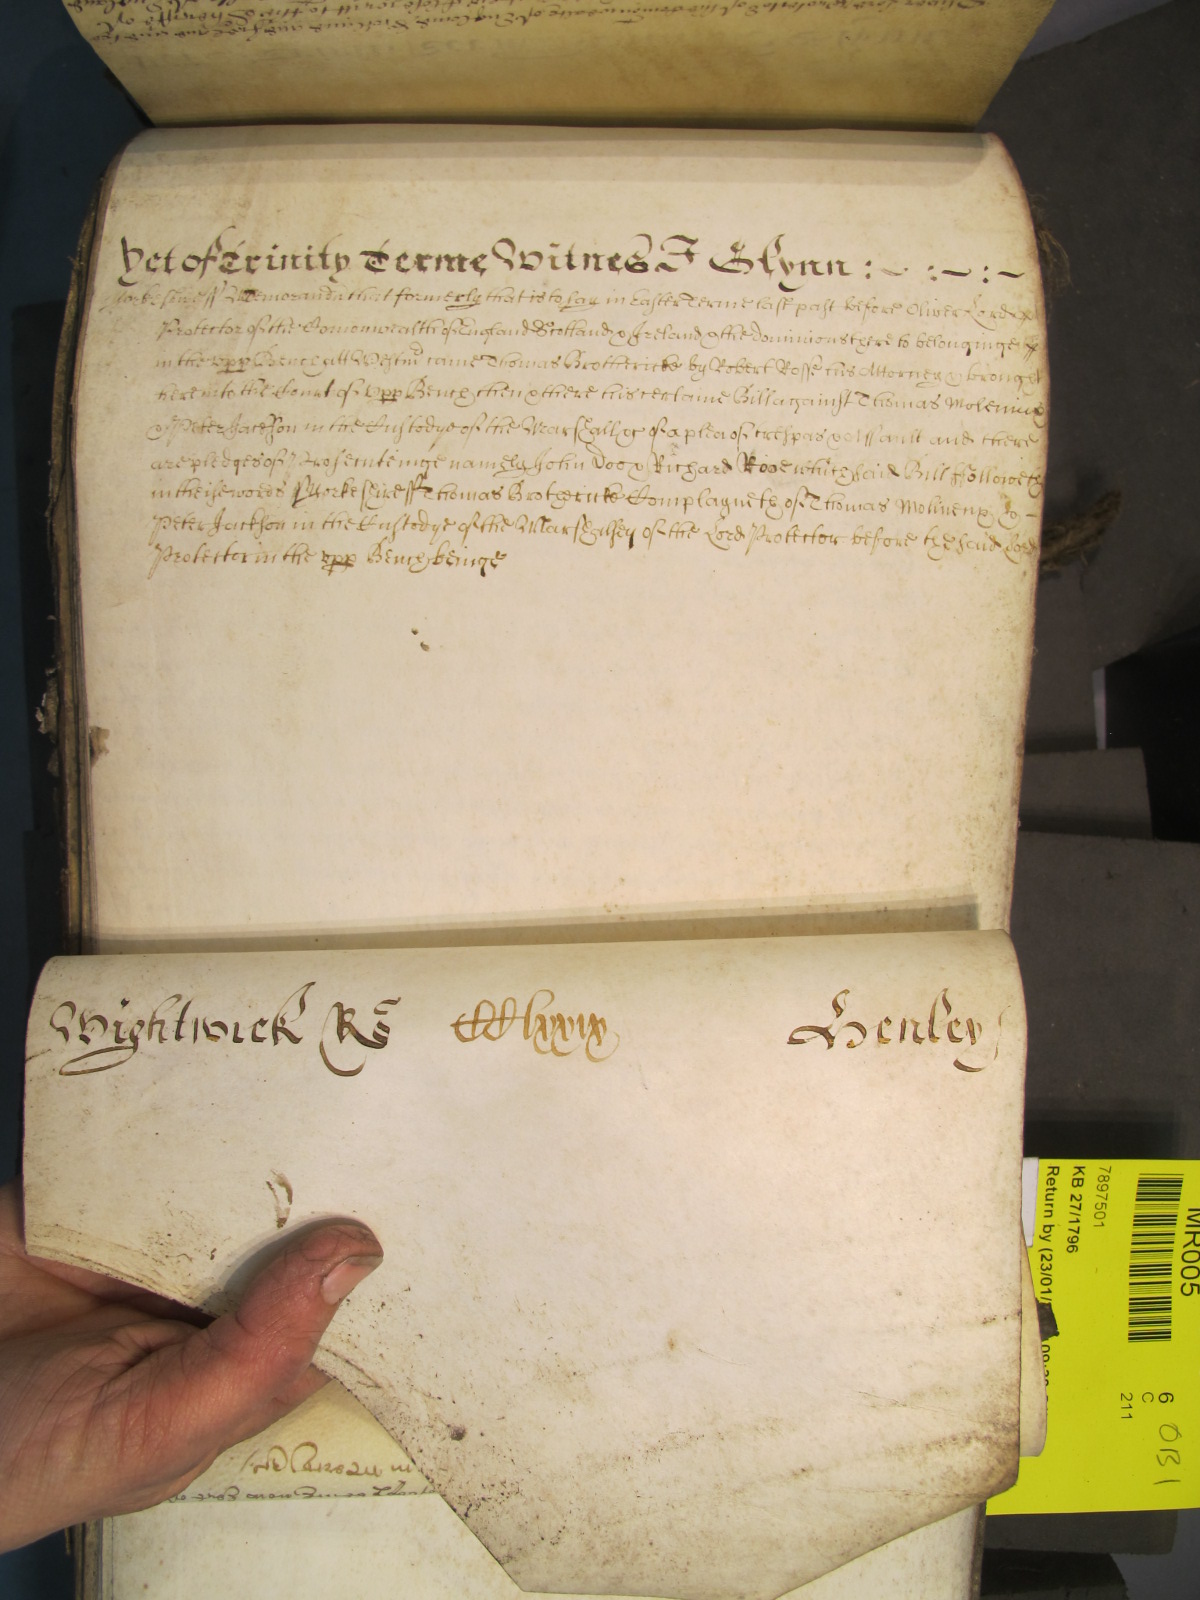 Yet of Trinity Terme Witnes J Glynn : ~ : ~ : ~
Yorkeshire ss Memorand that formerly that is to say in Easter Terme last past before Oliver Lord
Protector of the Comonwealth of England Scotland & Ireland & the dominions thereto belonginge
in the upp Bench att Westm came Thomas Brothericke by Robert Rosse his Attorney & brought
here into the Court of upp Bench then & there his certaine Bill against Thomas Moleniux
& Peter Jackson in the Custodye of the Marshall &c of a plea of trespas & Assault and there
are pledges of Prosecuteinge namely John Doo & Richard Rooe which said Bill followeth
in theise words Yorkeshire ss Thomas Brothericke Complayneth of Thomas Molineux &
Peter Jackson in the Custodye of the Marshalsey of the Lord Protector before the said Lord
Protector in the upp Bench beinge
Wightwick Rs CClxxix Henley
MR005
7897501
KB 27/1796
Return by (23/01/
6
C
211
OB1